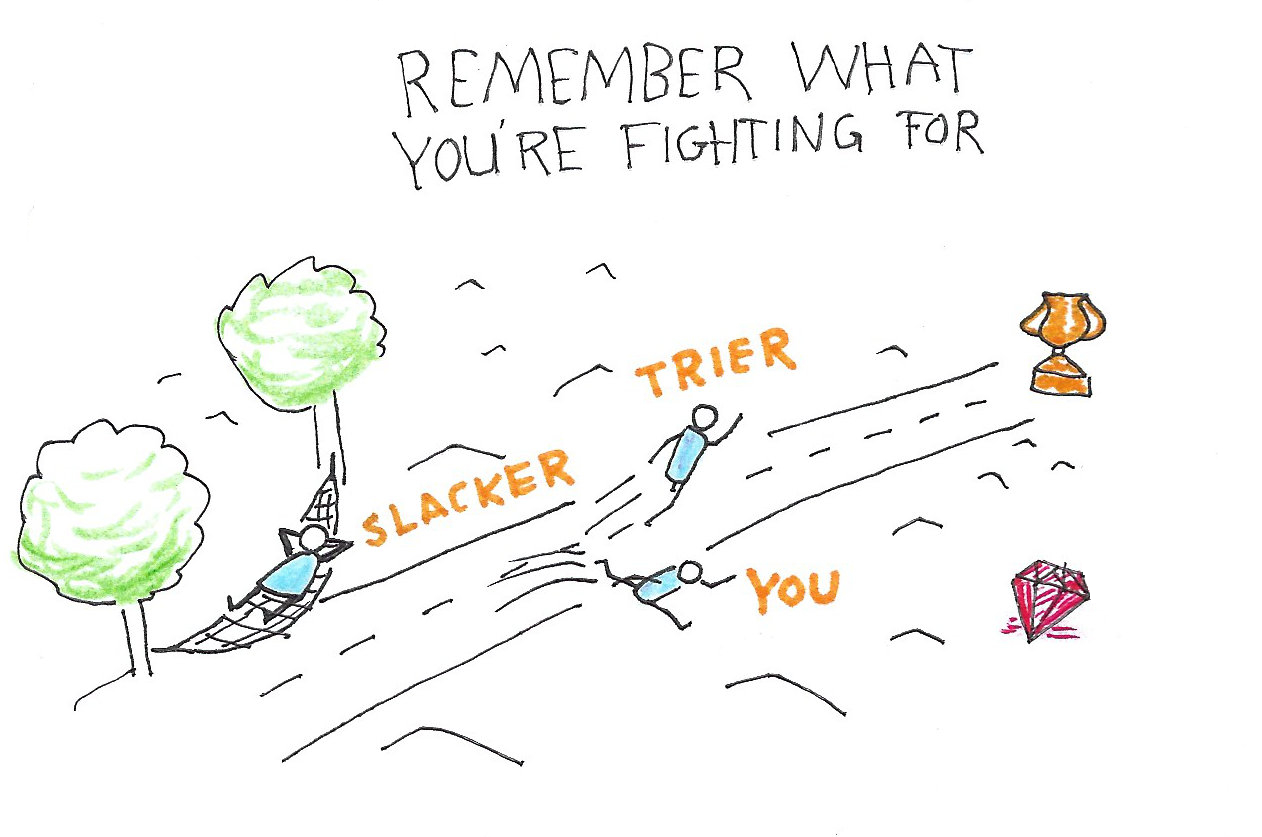 REMEMBER WHAT
YOU'RE FIGHTING FOR
TRIER
SLACKER
YOU